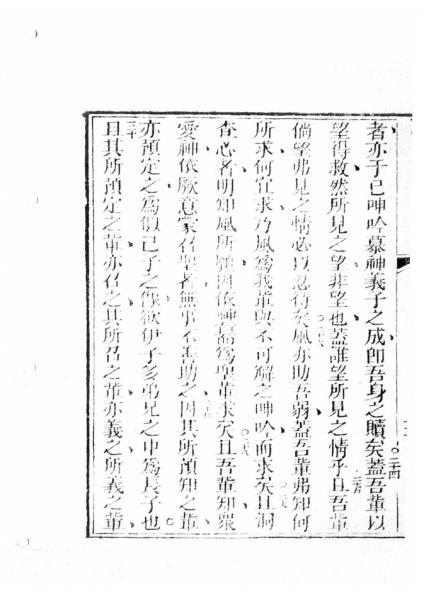 者亦于已呻吟慕神義子之成卽吾身之贖矣蓋吾輩以
〇二十四
望得救然所見之望非望也蓋誰望所見之情乎且吾輩
二十五
倘望弗見之情必以忍待矣風亦助吾弱蓋吾輩弗知何
二十六
所求何宜求乃風爲我輩與不可解之呻吟而求矣且洞
二十七
查心者明知風所願因依神爲聖輩求矣且吾輩知衆
二十八
愛神依厥意蒙召聖者無事不善助之因其所預知之輩
亦預定之爲似己子之像欲伊子多弟兄之中爲長子也
三十
且其所預定之輩亦召之其所召之輩亦義之所義之輩